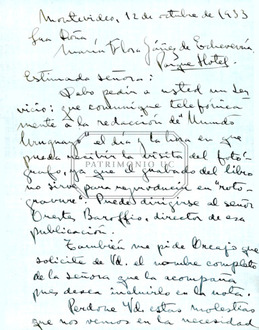 Montevideo, 12 de octubre de 1933
Sra Doña
María Flora Yáñez de Echeverría
Parque Hotel.
Estimada señora:
Debo pedir a usted un ser
vicio: que comunique telefónica
mente a la redacción de "Mundo
Uruguayo" el día y la hora en que
pueda recibir la visita del fotó
grafo, ya que el grabado del libro
no sirve para reproducir en "roto-
gravure". Puede dirigirse al señor
Orestes Baroffio, director de esa
publicación.
También me pide Orcajo que
solicite de Vd. el nombre completo
de la señora que la acompaña
pues desea incluirlo en la nota.
Perdone Vd. estas molestias
que nos vemos en la necesidad
PATRIMONIO UC